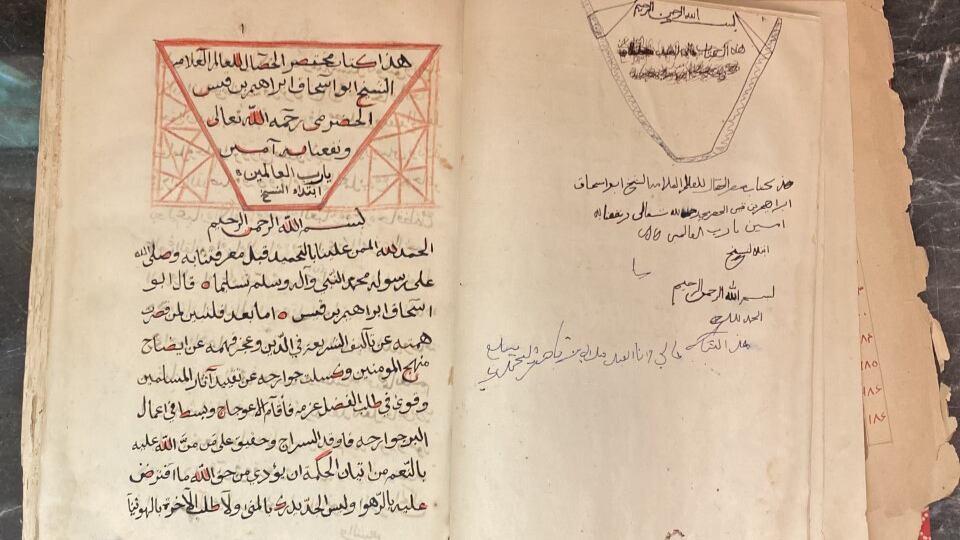 بسم الله الرحمن الرحيم
هذا كتاب مختصر الخصال للعالم العلامه الشيخ ابو اسحاق
ابراهيم بن قيس الحضرمي رحمه الله تعالى ونفعنا به
امين يا رب العالمين
ابتداء الشيخ
يا
بسم الله الرحمن الرحيم
الحمد لله
هذا الكتاب
١
هذا كتاب مختصر الخصال للعالم العلامه
الشيخ ابو اسحاق ابراهيم بن قيس
الحضرمي رحمه الله تعالى
ونفعنا به آمين
يا رب العالمين
ابتداء الشيخ
بسم الله الرحمن الرحيم
الحمد لله الممن علينا بالتحميد قبل معرفتنا به وصلى الله
على رسوله محمد النبي وآله وسلم تسليما قال ابو
اسحاق ابراهيم بن قيس اما بعد فلئن لمن قصرت
همته عن تأليف الشريعة في الدين وعجز فهمه عن ايضاح
منهج المومنين وكسلت جوارحه عن تقييد آثار المسلمين
وقوي في طلب الفضل عزمه فأقام الاعوجاج وبسط في اعمال
البر جوارحه فاوقد السراج وحقيق على من منّ الله عليه
بالتعم من اتيان الحكمة ان يؤدي من حق الله ما افترض
عليه بالرهوا وليس الجد يدرك بالمنى ولا طلب الآخرة بالهوينا